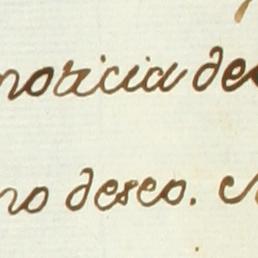 noticia de
no deseo.